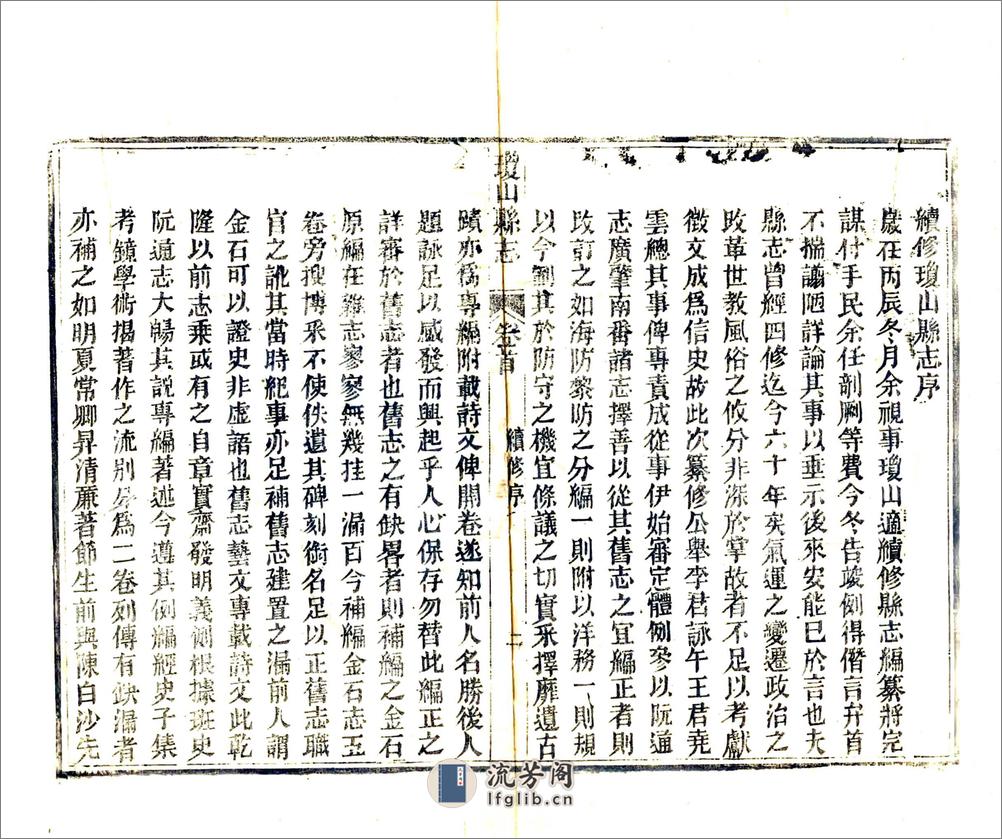 續修瓊山縣志序
歲在丙辰冬月余視事瓊山適續修縣志編纂將完
謀付手民余任剞劂等費今冬告竣例得僭言弁首
不揣譾陋詳論其事以垂示後來安能已於言也夫
縣志曾經四修迄今六十年矣氣運之變遷政治之
改革世教風俗之攸分非深於掌故者不足以考獻
徵文成爲信史故此次纂修公舉李君詠午王君堯
雲總其事俾專責成從事伊始審定體例參以阮通
志廣肇南番諸志擇善以從其舊志之宜編正者則
改訂之如海防黎防之分編一則附以洋務一則規
以今制其於防守之機宜條議之切實采擇靡遺古
瓊山縣志
卷首
續修序
二
蹟亦爲專編附載詩文俾開卷遂知前人名勝後人
題詠足以感發而興起乎人心保存勿替此編正之
詳審於舊志者也舊志之有缺畧者則補編之金石
原編在雜志寥寥無幾挂一漏百今補編金石志五
卷旁搜博采不使佚遺其碑刻銜名足以正舊志職
官之訛其當時紀事亦足補舊志建置之漏前人謂
金石可以證史非虛語也舊志藝文專載詩文此乾
隆以前志乘或有之自章實齋發明義例根據班史
阮通志大暢其説專編著述今遵其例編經史子集
考鏡學術揭著作之流别分爲二卷列傳有缺漏者
亦補之如明夏常卿昇清廉著節生前與陳白沙先
流芳阁
lfglib.cn